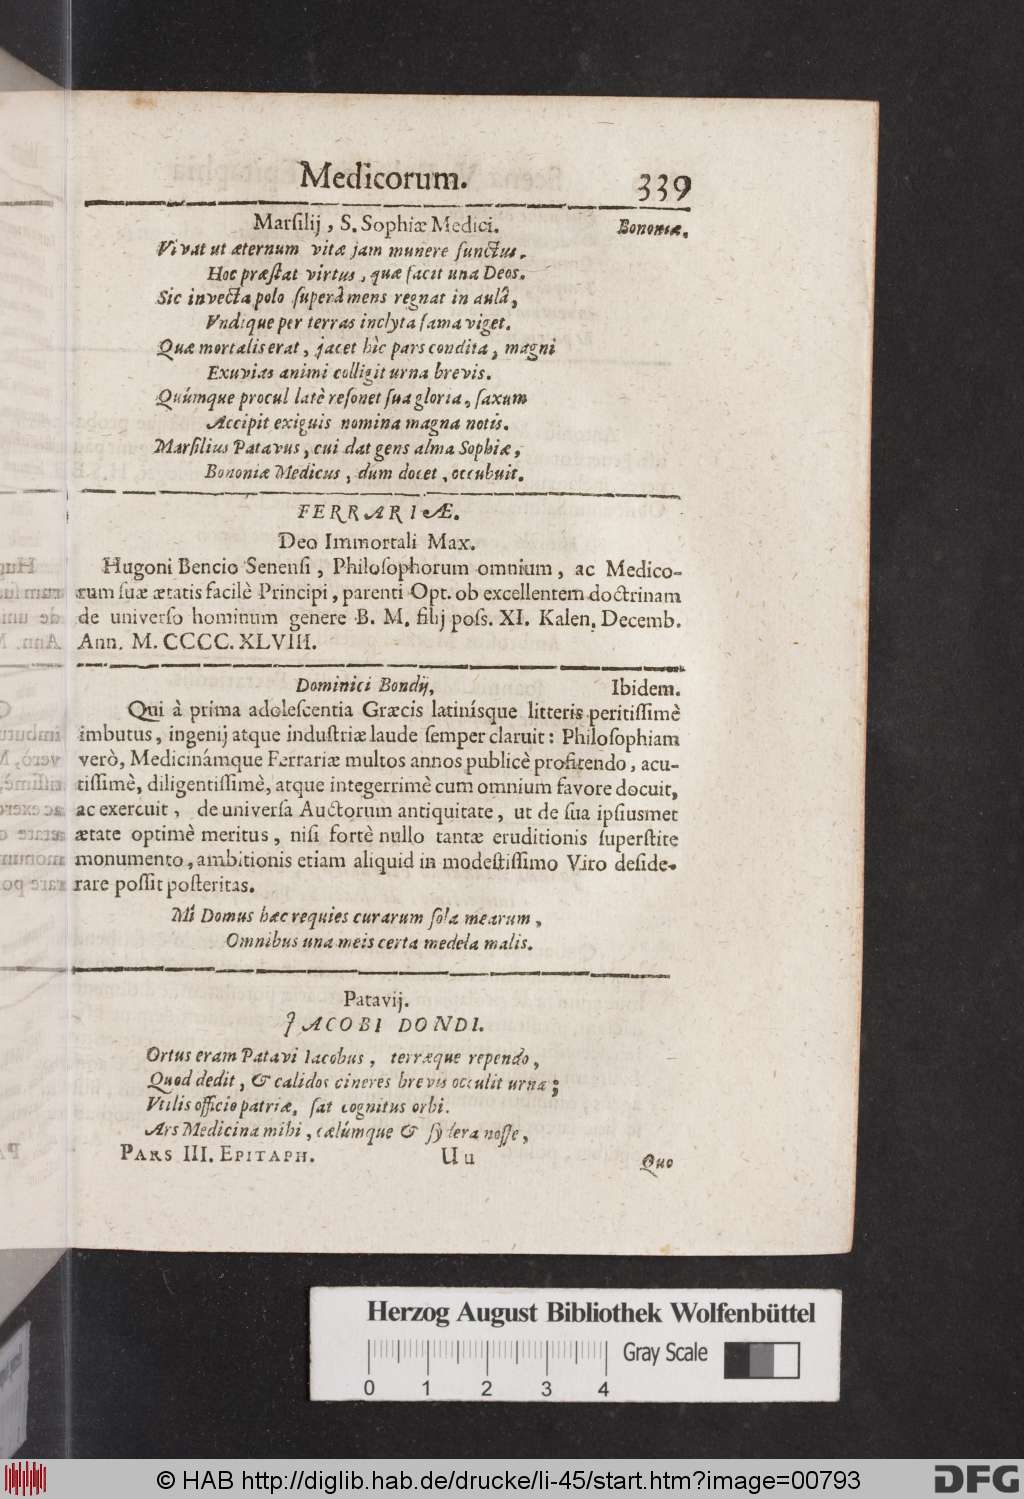 Medicorum. 339
Marſilij, S. Sophiæ Medici. Bononiæ.
Vivat ut æternum vitæ jam munere functus.
Hoc præſtat virtus, quæ facit una Deos.
Sic invecta polo ſuperâ mens regnat in aulâ,
Vndique per terras inclyta fama viget.
Quæ mortalis erat, jacet hîc pars condita, magni
Exuvias animi colligit urna brevis.
Quúmque procul latè reſonet ſua gloria, ſaxum
Accipit exiguis nomina magna notis.
Marſilius Patavus, cui dat gens alma Sophiæ,
Bononiæ Medicus, dum docet, occubuit.
FERRARIÆ.
Deo Immortali Max.
Hugoni Bencio Senenſi, Philoſophorum omnium, ac Medico-
rum ſuæ ætatis facilè Principi, parenti Opt. ob excellentem doctrinam
de univerſo hominum genere B. M. filij poſs. XI. Kalen. Decemb.
Ann. M. CCCC. XLVIII.
Dominici Bondij, Ibidem.
Qui à prima adoleſcentia Græcis latinísque litteris peritiſſimè
imbutus, ingenij atque induſtriæ laude ſemper claruit: Philoſophiam
verò, Medicinámque Ferrariæ multos annos publicè profitendo, acu-
tiſſimè, diligentiſſimè, atque integerrimè cum omnium favore docuit,
ac exercuit, de univerſa Auctorum antiquitate, ut de ſua ipſiusmet
ætate optimè meritus, niſi fortè nullo tantæ eruditionis ſuperſtite
monumento, ambitionis etiam aliquid in modeſtiſſimo Viro deſide-
rare poſſit poſteritas.
Mî Domus hæc requies curarum ſola mearum,
Omnibus una meis certa medela malis.
Patavij.
JACOBI DONDI.
Ortus eram Patavi Iacobus, terræque rependo,
Quod dedit, & calidos cineres brevis occulit urna;
Vtilis officio patriæ, ſat cognitus orbi.
Ars Medicina mihi, cælúmque & ſydera noſſe,
PARS III. EPITAPH. Uu Quo
Herzog August Bibliothek Wolfenbüttel
Gray Scale
0 1 2 3 4
© HAB http://diglib.hab.de/drucke/li-45/start.htm?image=00793 DFG